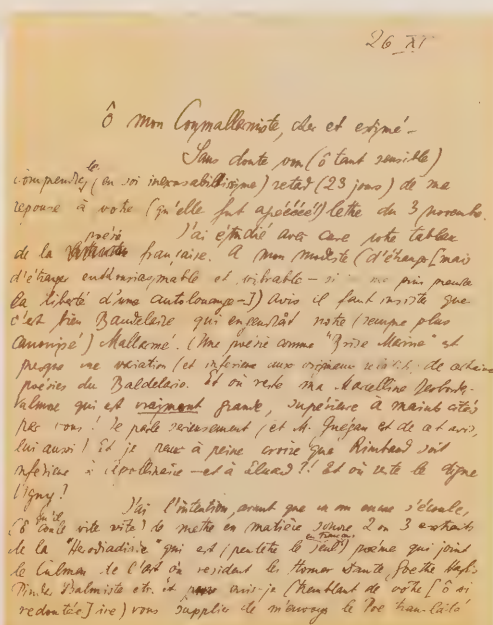 26 XI
Ô mon Coymallarmiste, cher et estimé —
Sans doute vous (ô tant sensible)
comprendrez le (en soi inexcusabilissime) retard (23 jours) de ma
reponse à votre (qu'elle fut apéééée!) lettre du 3 novembre.
J'ai étudié avec care votre tableau
de la poésie française. A mon modeste (d'étranger [mais
d'étranger enthousiasmable et vibrable — si me puis prendre
la liberté d'une autolouange —]) avis il faut insister que
c'est bien Baudelaire qui engendrât notre (semper plus
canonisé) Mallarmé. (Une poésie comme "Brise Marine" est
presque une variation (et inferieure aux originaux relatifs) de certaines
poésies du Baldelario. Et où reste ma Marcelline Desbordes-
Valmore qui est vraiment grande, supérieure à maints cités
par vous! Je parle serieusement (et M. Guégan est de cet avis,
lui aussi! Et je peux à peine croire que Rimbaud soit
inférieur à Apollinaire — et à Eluard?! Et où reste le digne
Vigny?
J'ai l'intention, avant que un an encore s'écoule,
(ô qu'il coule vite vite) de mettre en matière sonore 2 ou 3 extraits
de la "Herodiadisie" qui est (peutetre le seul) en français poème qui joint
le Culmen de l'art où resident les Homer Dante Goethe
Pindar etc. et puis-je (tremblant de votre [ô si
redoutée] ire) vous supplier de m'envoyer le Poe translaté